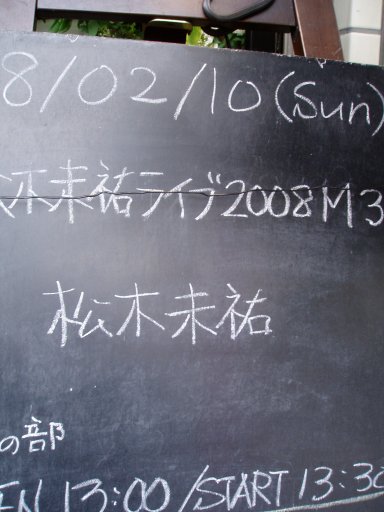 8/02/10(Sun)
木未祐ライブ2008M3
松木未祐
の部
EN 13:00/START 13:30